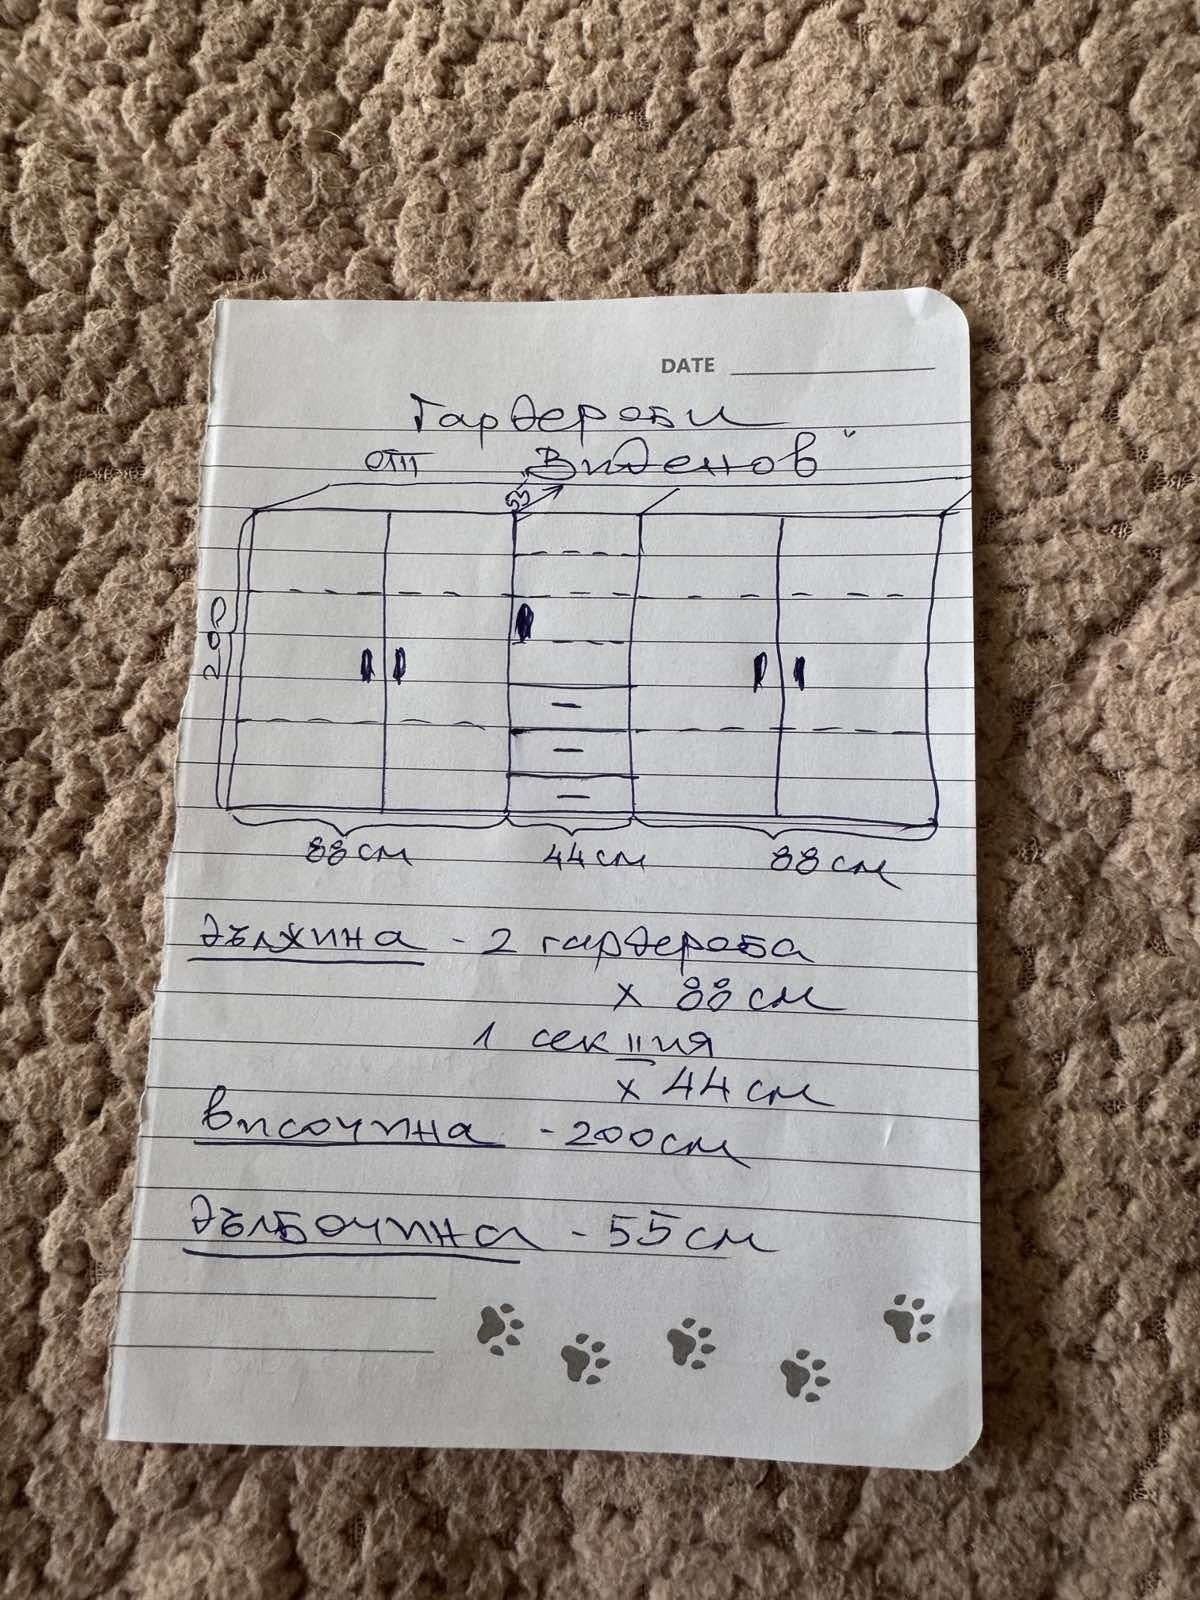 DATE
Гардероби
от "Виденов"
55
200
88 см 44 см 88 см
дължина - 2 гардероба
x 88 см
1 секция
x 44 см
височина - 200 см
дълбочина - 55 см